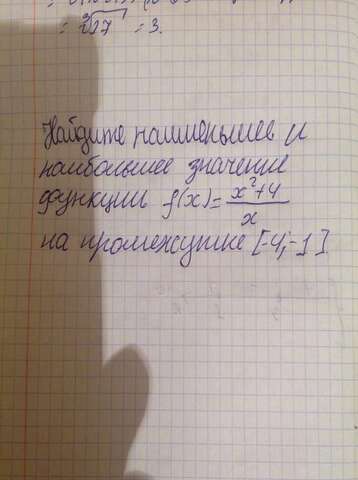 = ∛27 = 3.
Найдите наименьшее и
наибольшее значение
функции f(x) = (x²+4)/x
на промежутке [-4;-1]